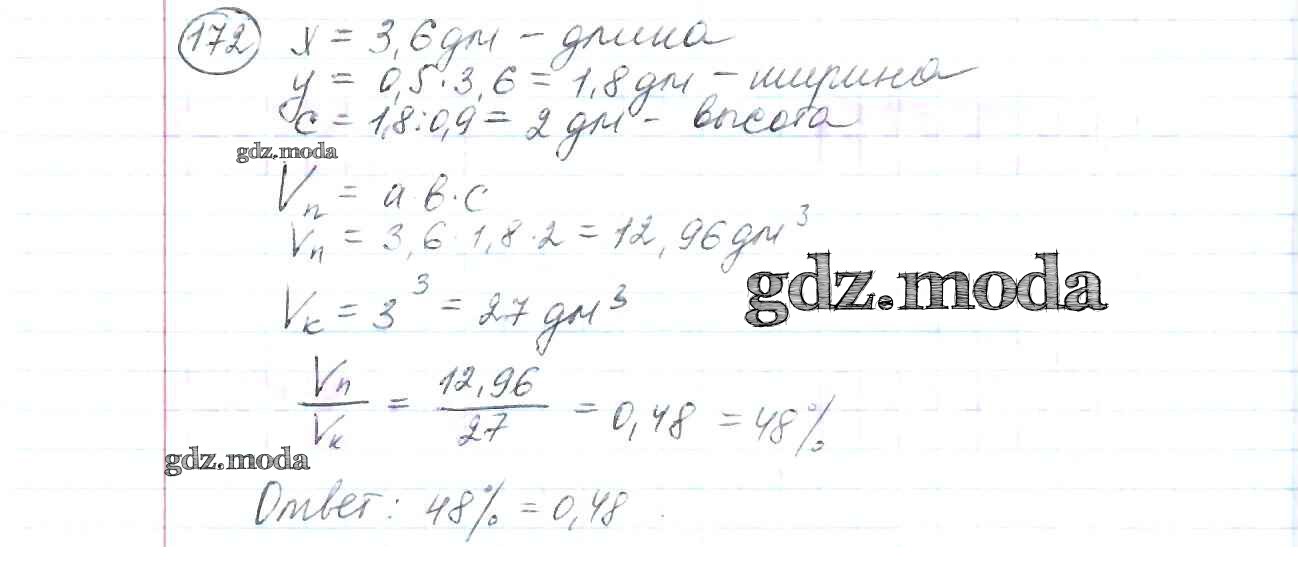 172 x = 3,6 дм - длина
y = 0,5·3,6 = 1,8 дм - ширина
c = 1,8:0,9 = 2 дм - высота
gdz.moda
Vп = a·b·c
Vп = 3,6·1,8·2 = 12,96 дм³
gdz.moda
Vк = 3³ = 27 дм³
Vп/Vк = 12,96/27 = 0,48 = 48%
gdz.moda
Ответ: 48% = 0,48.